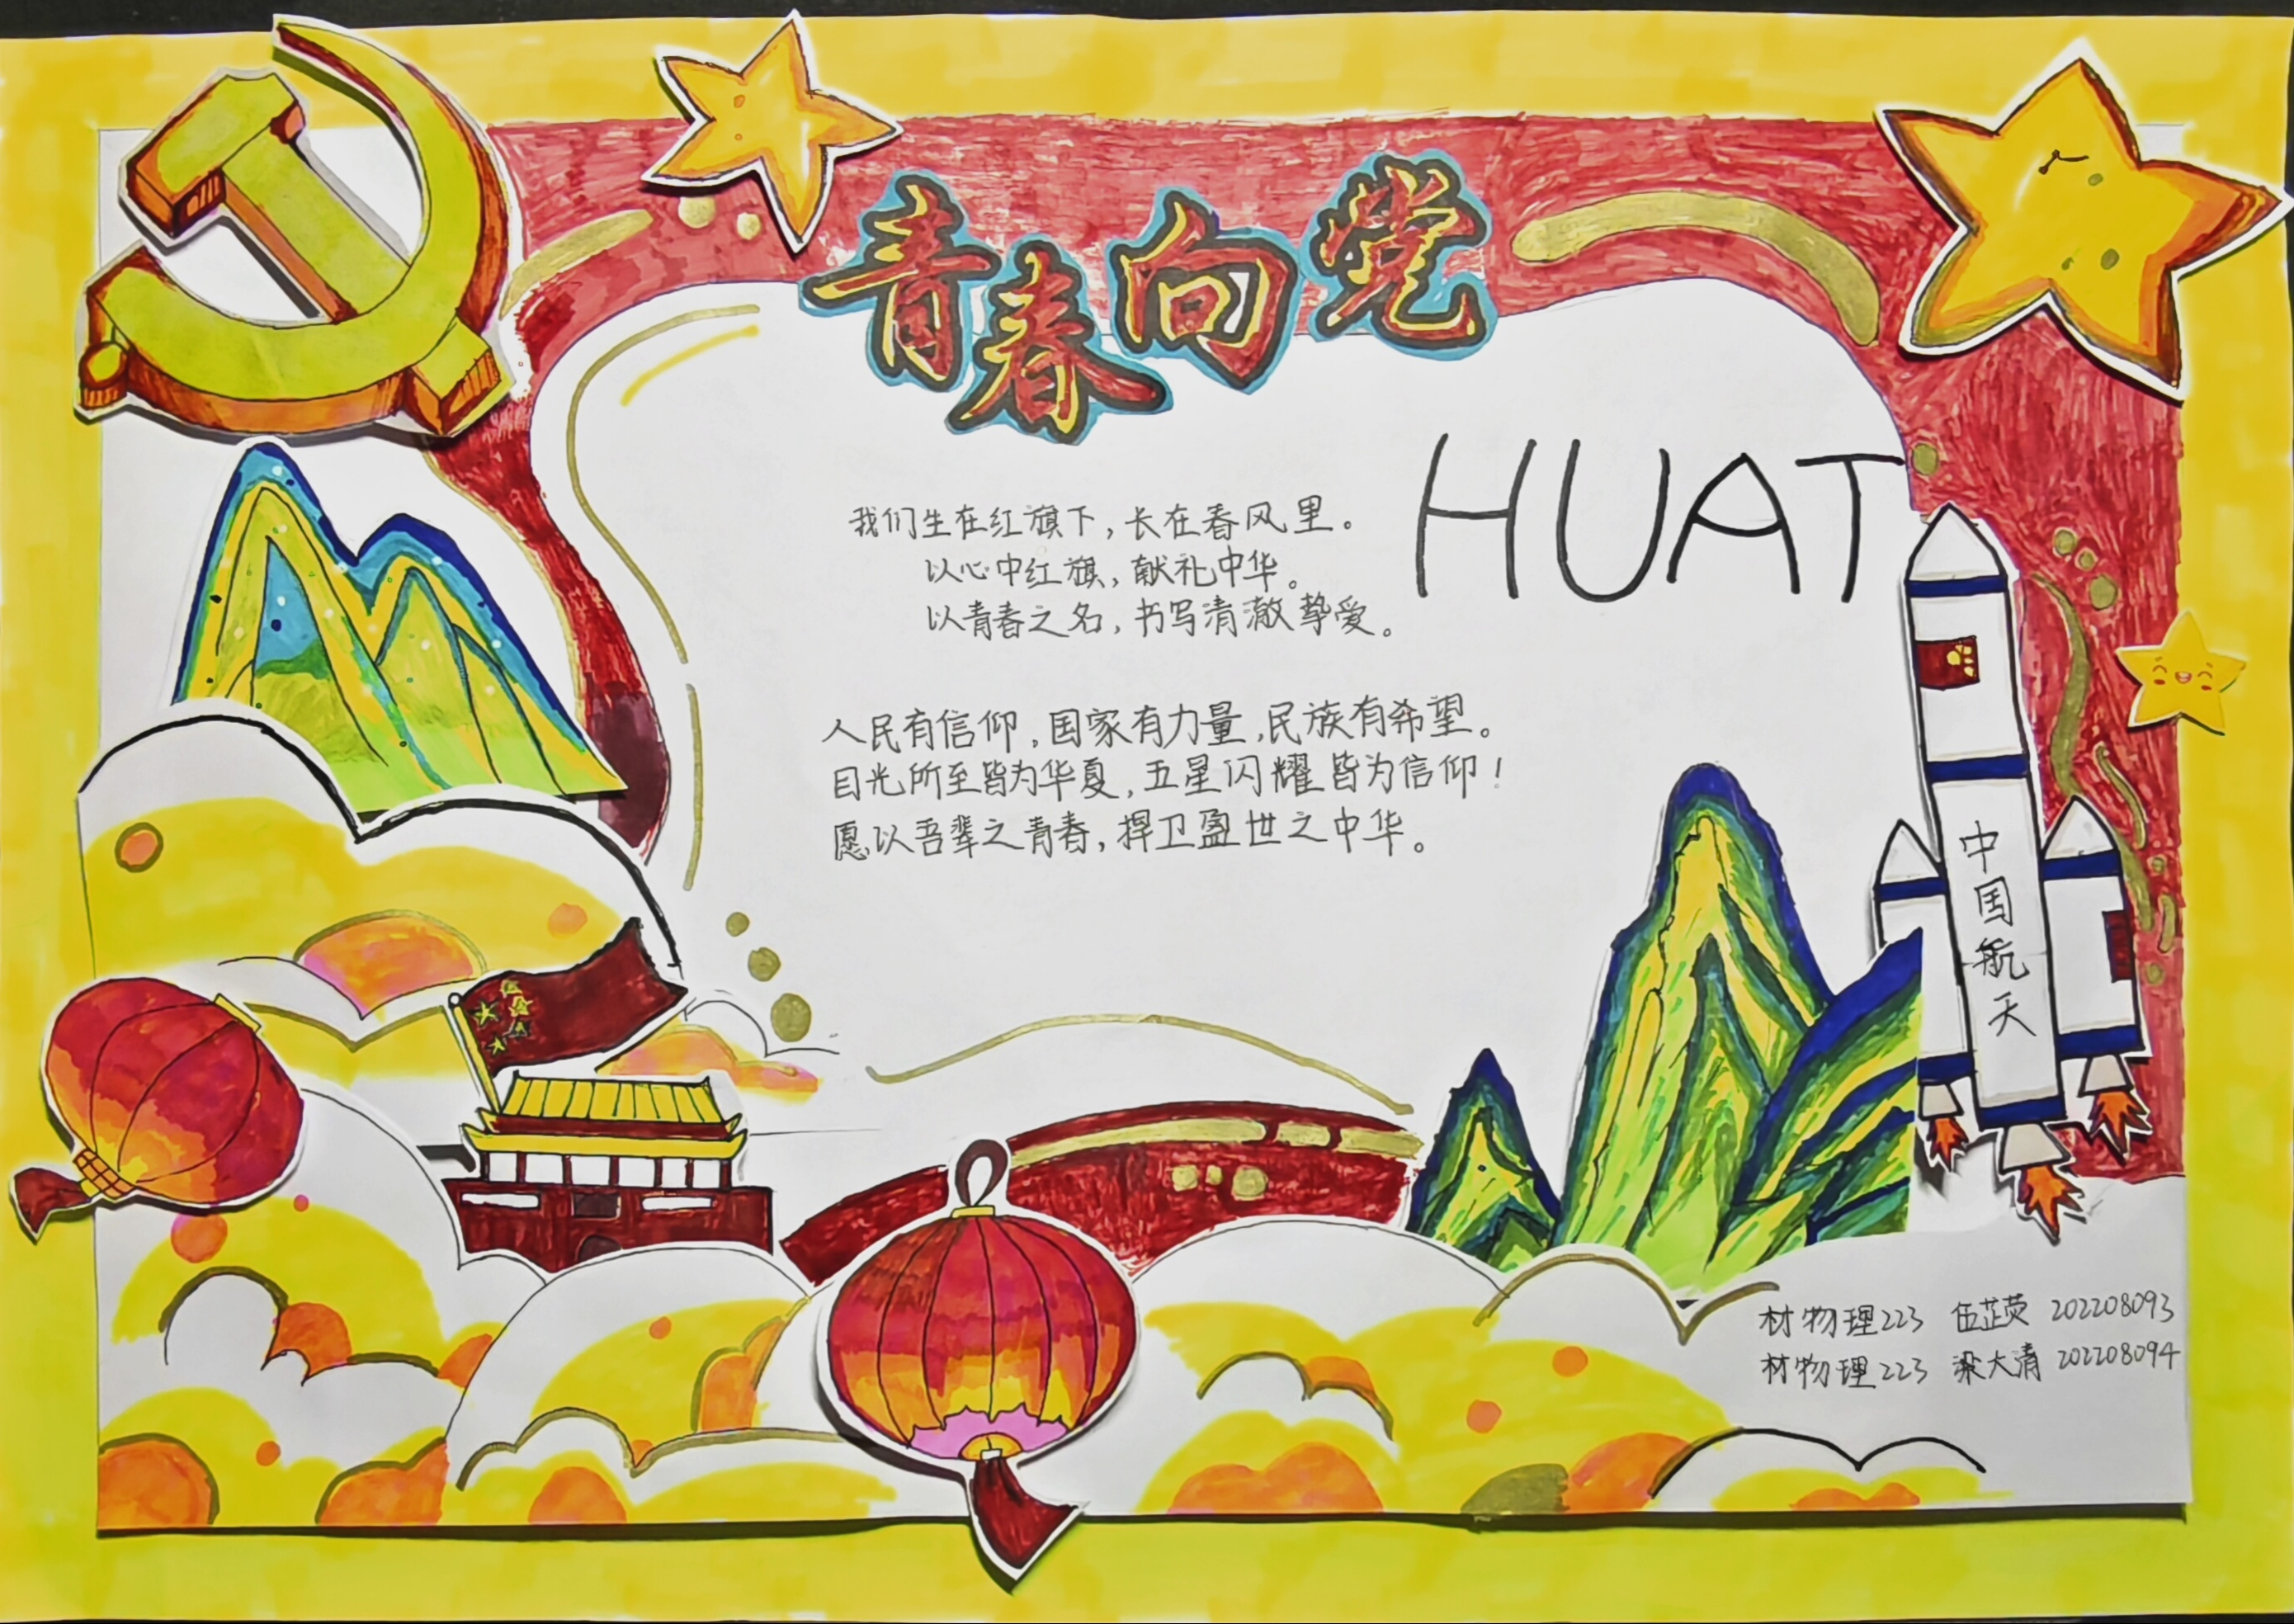 青春向党
HUAT
我们生在红旗下，长在春风里。
以心中红旗，献礼中华。
以青春之名，书写清澈挚爱。
人民有信仰，国家有力量，民族有希望。
目光所至皆为华夏，五星闪耀皆为信仰！
愿以吾辈之青春，捍卫盈世之中华。
中国航天
材物理223 伍芷荧 202208093
材物理223 梁大清 202208094